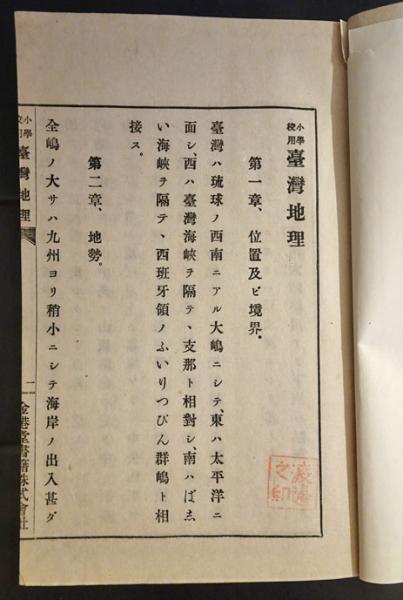 小學校用臺灣地理
第一章、位置及ビ境界。
臺灣ハ琉球ノ西南ニアル大嶋ニシテ、東ハ太平洋ニ
面シ、西ハ臺灣海峽ヲ隔テ、支那ト相對シ、南ハばし
い海峽ヲ隔テ、西班牙領ノふいりつぴん群嶋ト相
接ス。
第二章、地勢。
全嶋ノ大サハ九州ヨリ稍小ニシテ海岸ノ出入甚ダ
小學校用臺灣地理
一
金港堂書籍株式會社
之印